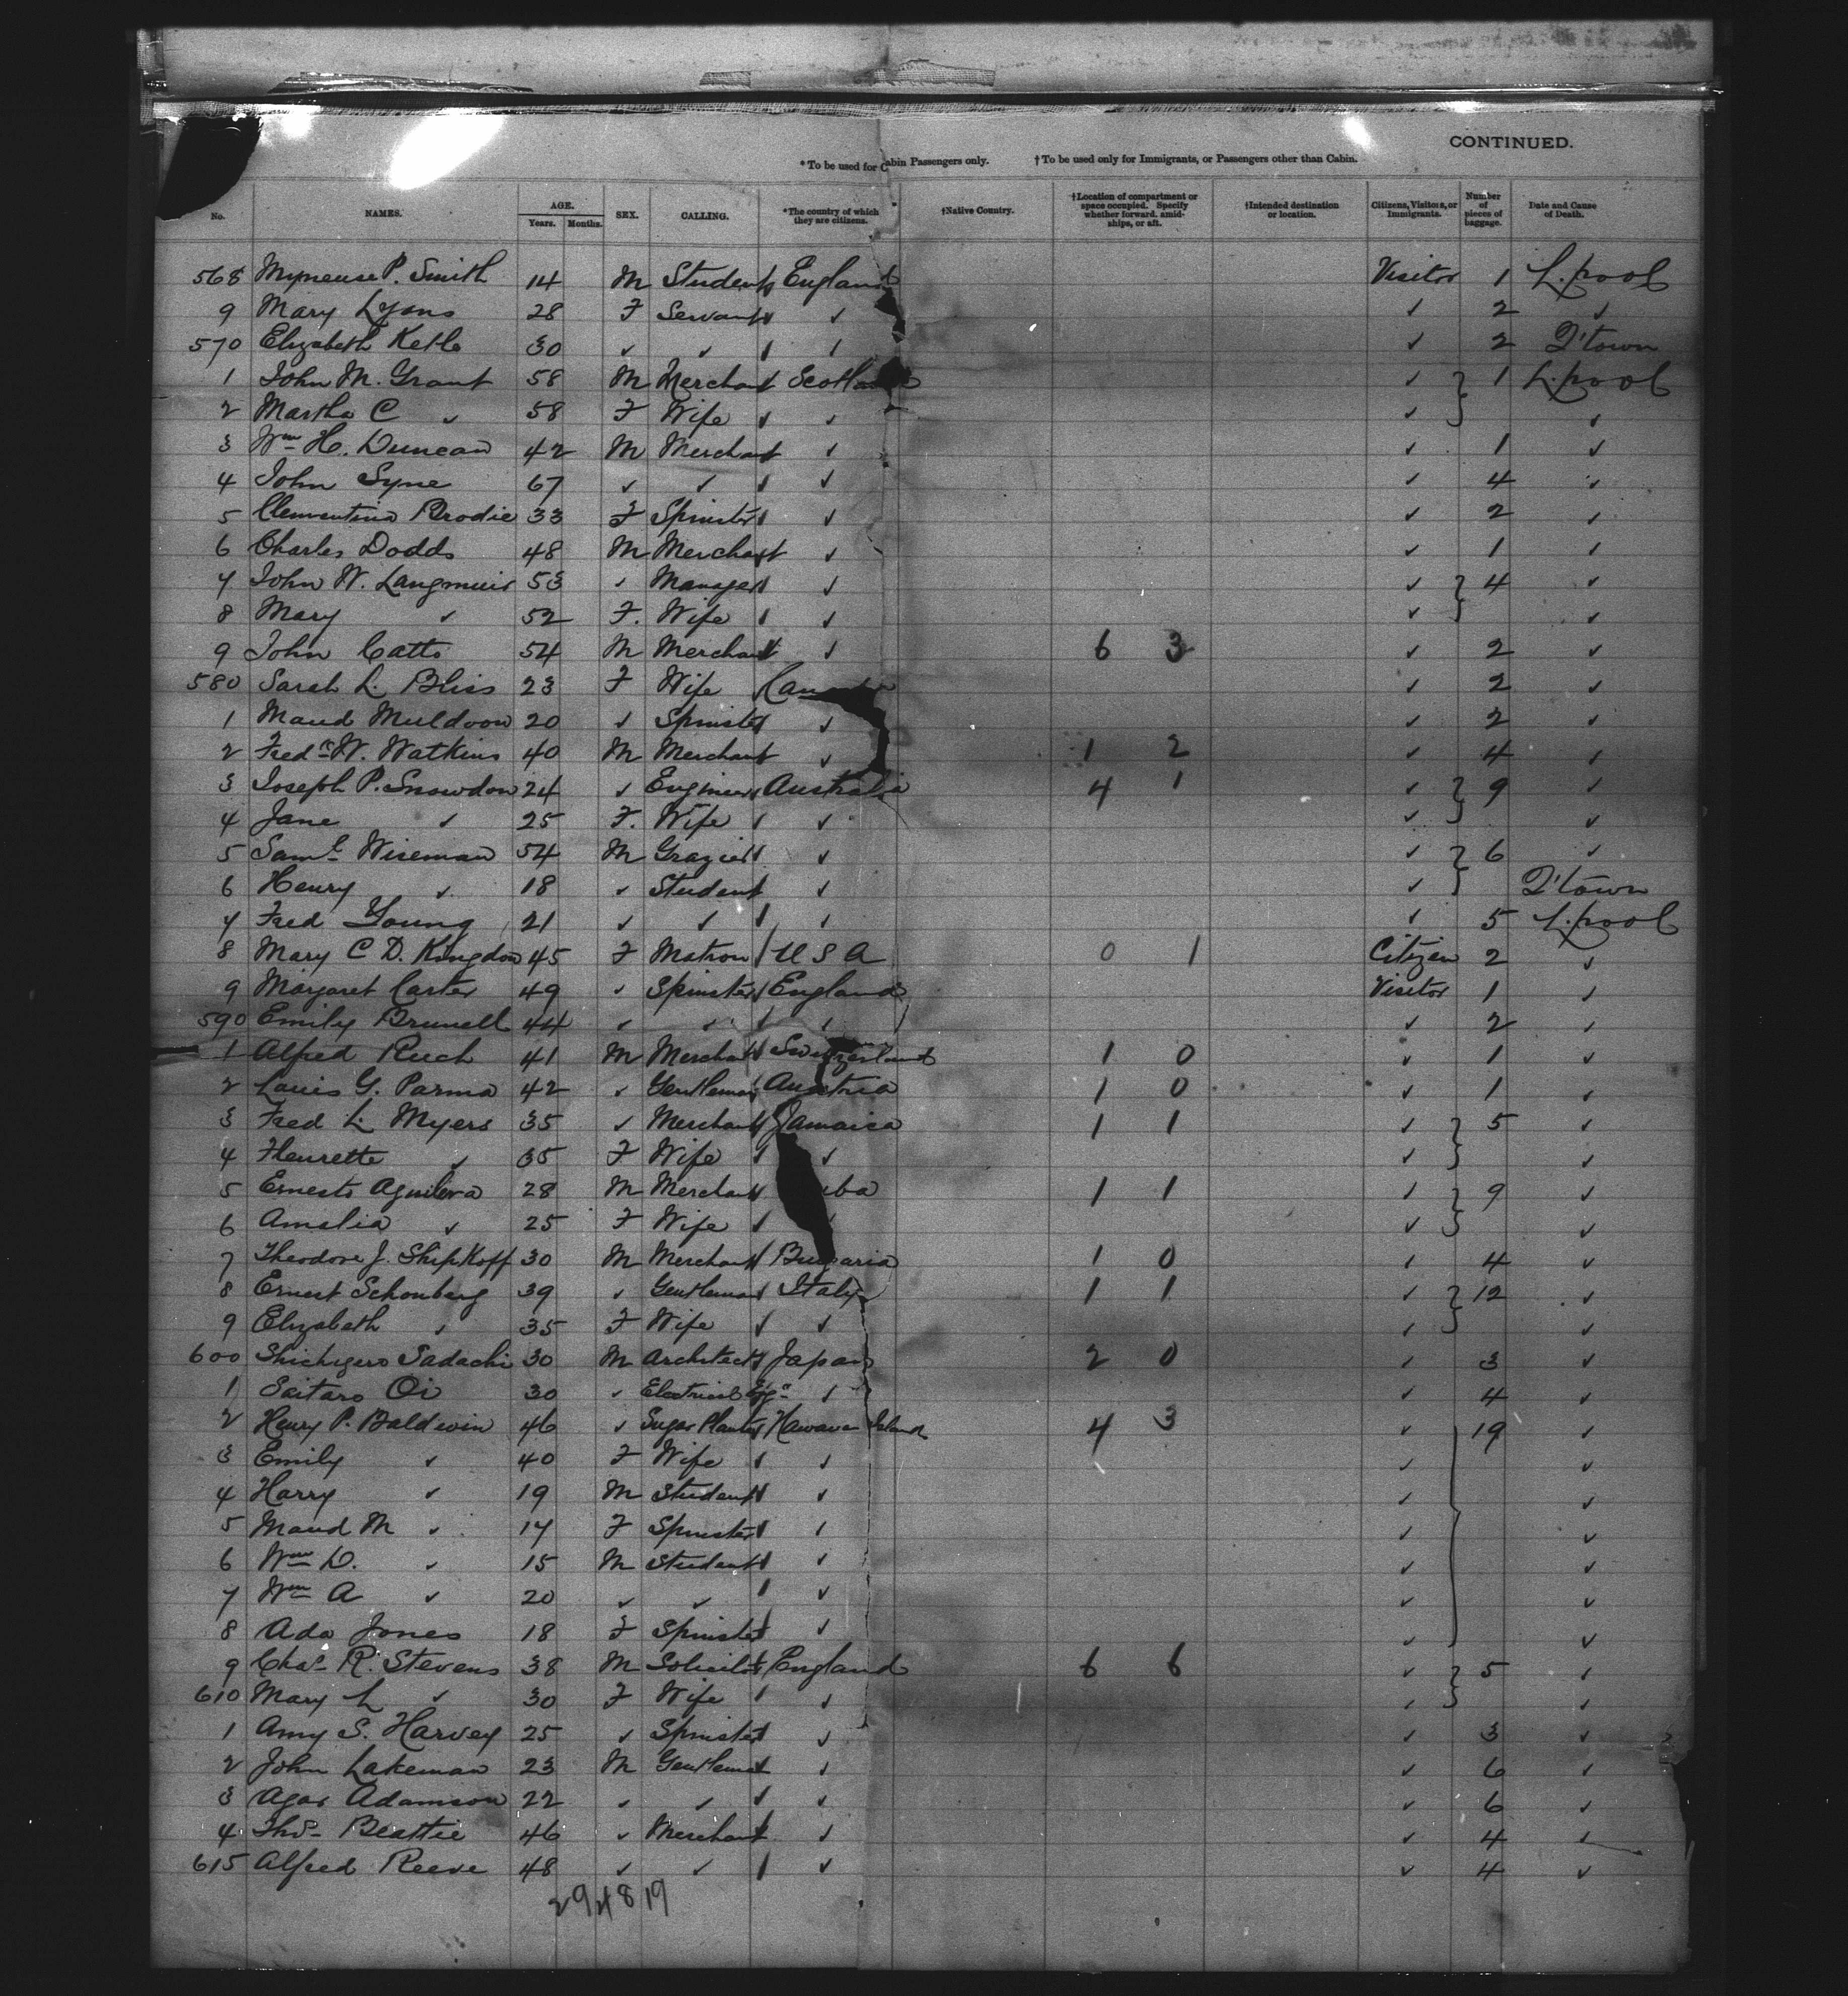 CONTINUED.
*To be used for Cabin Passengers only. †To be used only for Immigrants, or Passengers other than Cabin.
No. NAMES. AGE. Years. Months. SEX. CALLING. *The country of which they are citizens. †Native Country. †Location of compartment or space occupied. Specify whether forward, amidships, or aft. †Intended destination or location. Citizens, Visitors, or Immigrants. Number of pieces of baggage. Date and Cause of Death.
568 P. Smith 14 M Student England Visitor 1 L.pool
9 Mary Lyons 28 F Servant ✓ ✓ 2 ✓
570 Elizabeth Ketle 30 ✓ ✓ ✓ ✓ 2 Q'town
1 John M. Grant 58 M Merchant Scotland ✓ 1 L.pool
2 Martha C ✓ 58 F Wife ✓ ✓ ✓
3 Wm H. Duncan 42 M Merchant ✓ ✓ 1 ✓
4 John Syne 67 ✓ ✓ ✓ ✓ 4 ✓
5 Clementina Brodie 33 F Spinster ✓ ✓ 2 ✓
6 Charles Dodds 48 M Merchant ✓ ✓ 1 ✓
7 John W. Langmuir 53 ✓ Manager ✓ ✓ 4 ✓
8 Mary ✓ 52 F. Wife ✓ ✓ ✓
9 John Catto 54 M Merchant ✓ 6 3 ✓ 2 ✓
580 Sarah L. Bliss 23 F Wife Can ✓ 2 ✓
1 Maud Muldoon 20 ✓ Spinster ✓ ✓ 2 ✓
2 Fredk W. Watkins 40 M Merchant ✓ 1 2 ✓ 4 ✓
3 Joseph P. Snowdon 24 ✓ Engineer Australia 4 1 ✓ 9 ✓
4 Jane ✓ 25 F. Wife ✓ ✓ ✓
5 Saml Wiseman 54 M Grazier ✓ ✓ 6 ✓
6 Henry ✓ 18 ✓ Student ✓ ✓ Q'town
7 Fred Young 21 ✓ ✓ ✓ ✓ 5 L.pool
8 Mary C D. Kingdon 45 F Matron U S A 0 1 Citizen 2 ✓
9 Margaret Carter 49 ✓ Spinster England Visitor 1 ✓
590 Emily Brunell 44 ✓ ✓ ✓ ✓ 2 ✓
1 Alfred Ruch 41 M Merchant Switzerland 1 0 ✓ 1 ✓
2 Louis G. Parma 42 ✓ Gentleman Austria 1 0 ✓ 1 ✓
3 Fred L. Myers 35 ✓ Merchant Jamaica 1 1 ✓ 5 ✓
4 Henrette ✓ 35 F Wife ✓ ✓ ✓
5 Ernesto Aguilera 28 M Merchant uba 1 1 ✓ 9 ✓
6 Amalia ✓ 25 F Wife ✓ ✓ ✓
7 Theodore J. Shipkoff 30 M Merchant Bulgaria 1 0 ✓ 4 ✓
8 Ernest Schonberg 39 ✓ Gentleman Italy 1 1 ✓ 12 ✓
9 Elizabeth ✓ 35 F Wife ✓ ✓ ✓
600 Shichigero Sadachi 30 M Architect Japan 2 0 ✓ 3 ✓
1 Saitaro Oi 30 ✓ Electrical Egr ✓ ✓ 4 ✓
2 Henry P. Baldwin 46 ✓ Sugar Planter Hawaian Island 4 3 ✓ 19 ✓
3 Emily ✓ 40 F Wife ✓ ✓ ✓
4 Harry ✓ 19 M Student ✓ ✓ ✓
5 Maud M ✓ 17 F Spinster ✓ ✓ ✓
6 Wm D. ✓ 15 M Student ✓ ✓ ✓
7 Wm A ✓ 20 ✓ ✓ ✓ ✓ ✓
8 Ada Jones 18 F Spinster ✓ ✓ ✓
9 Chas R. Stevens 38 M Solicitor England 6 6 ✓ 5 ✓
610 Mary L ✓ 30 F Wife ✓ ✓ ✓
1 Amy S. Harvey 25 ✓ Spinster ✓ ✓ 3 ✓
2 John Lakeman 23 M Gentleman ✓ ✓ 6 ✓
3 Agar Adamson 22 ✓ ✓ ✓ ✓ 6 ✓
4 Thos Beattie 46 ✓ Merchant ✓ ✓ 4 ✓
615 Alfred Reeve 48 ✓ ✓ ✓ ✓ 4 ✓
29 48 19